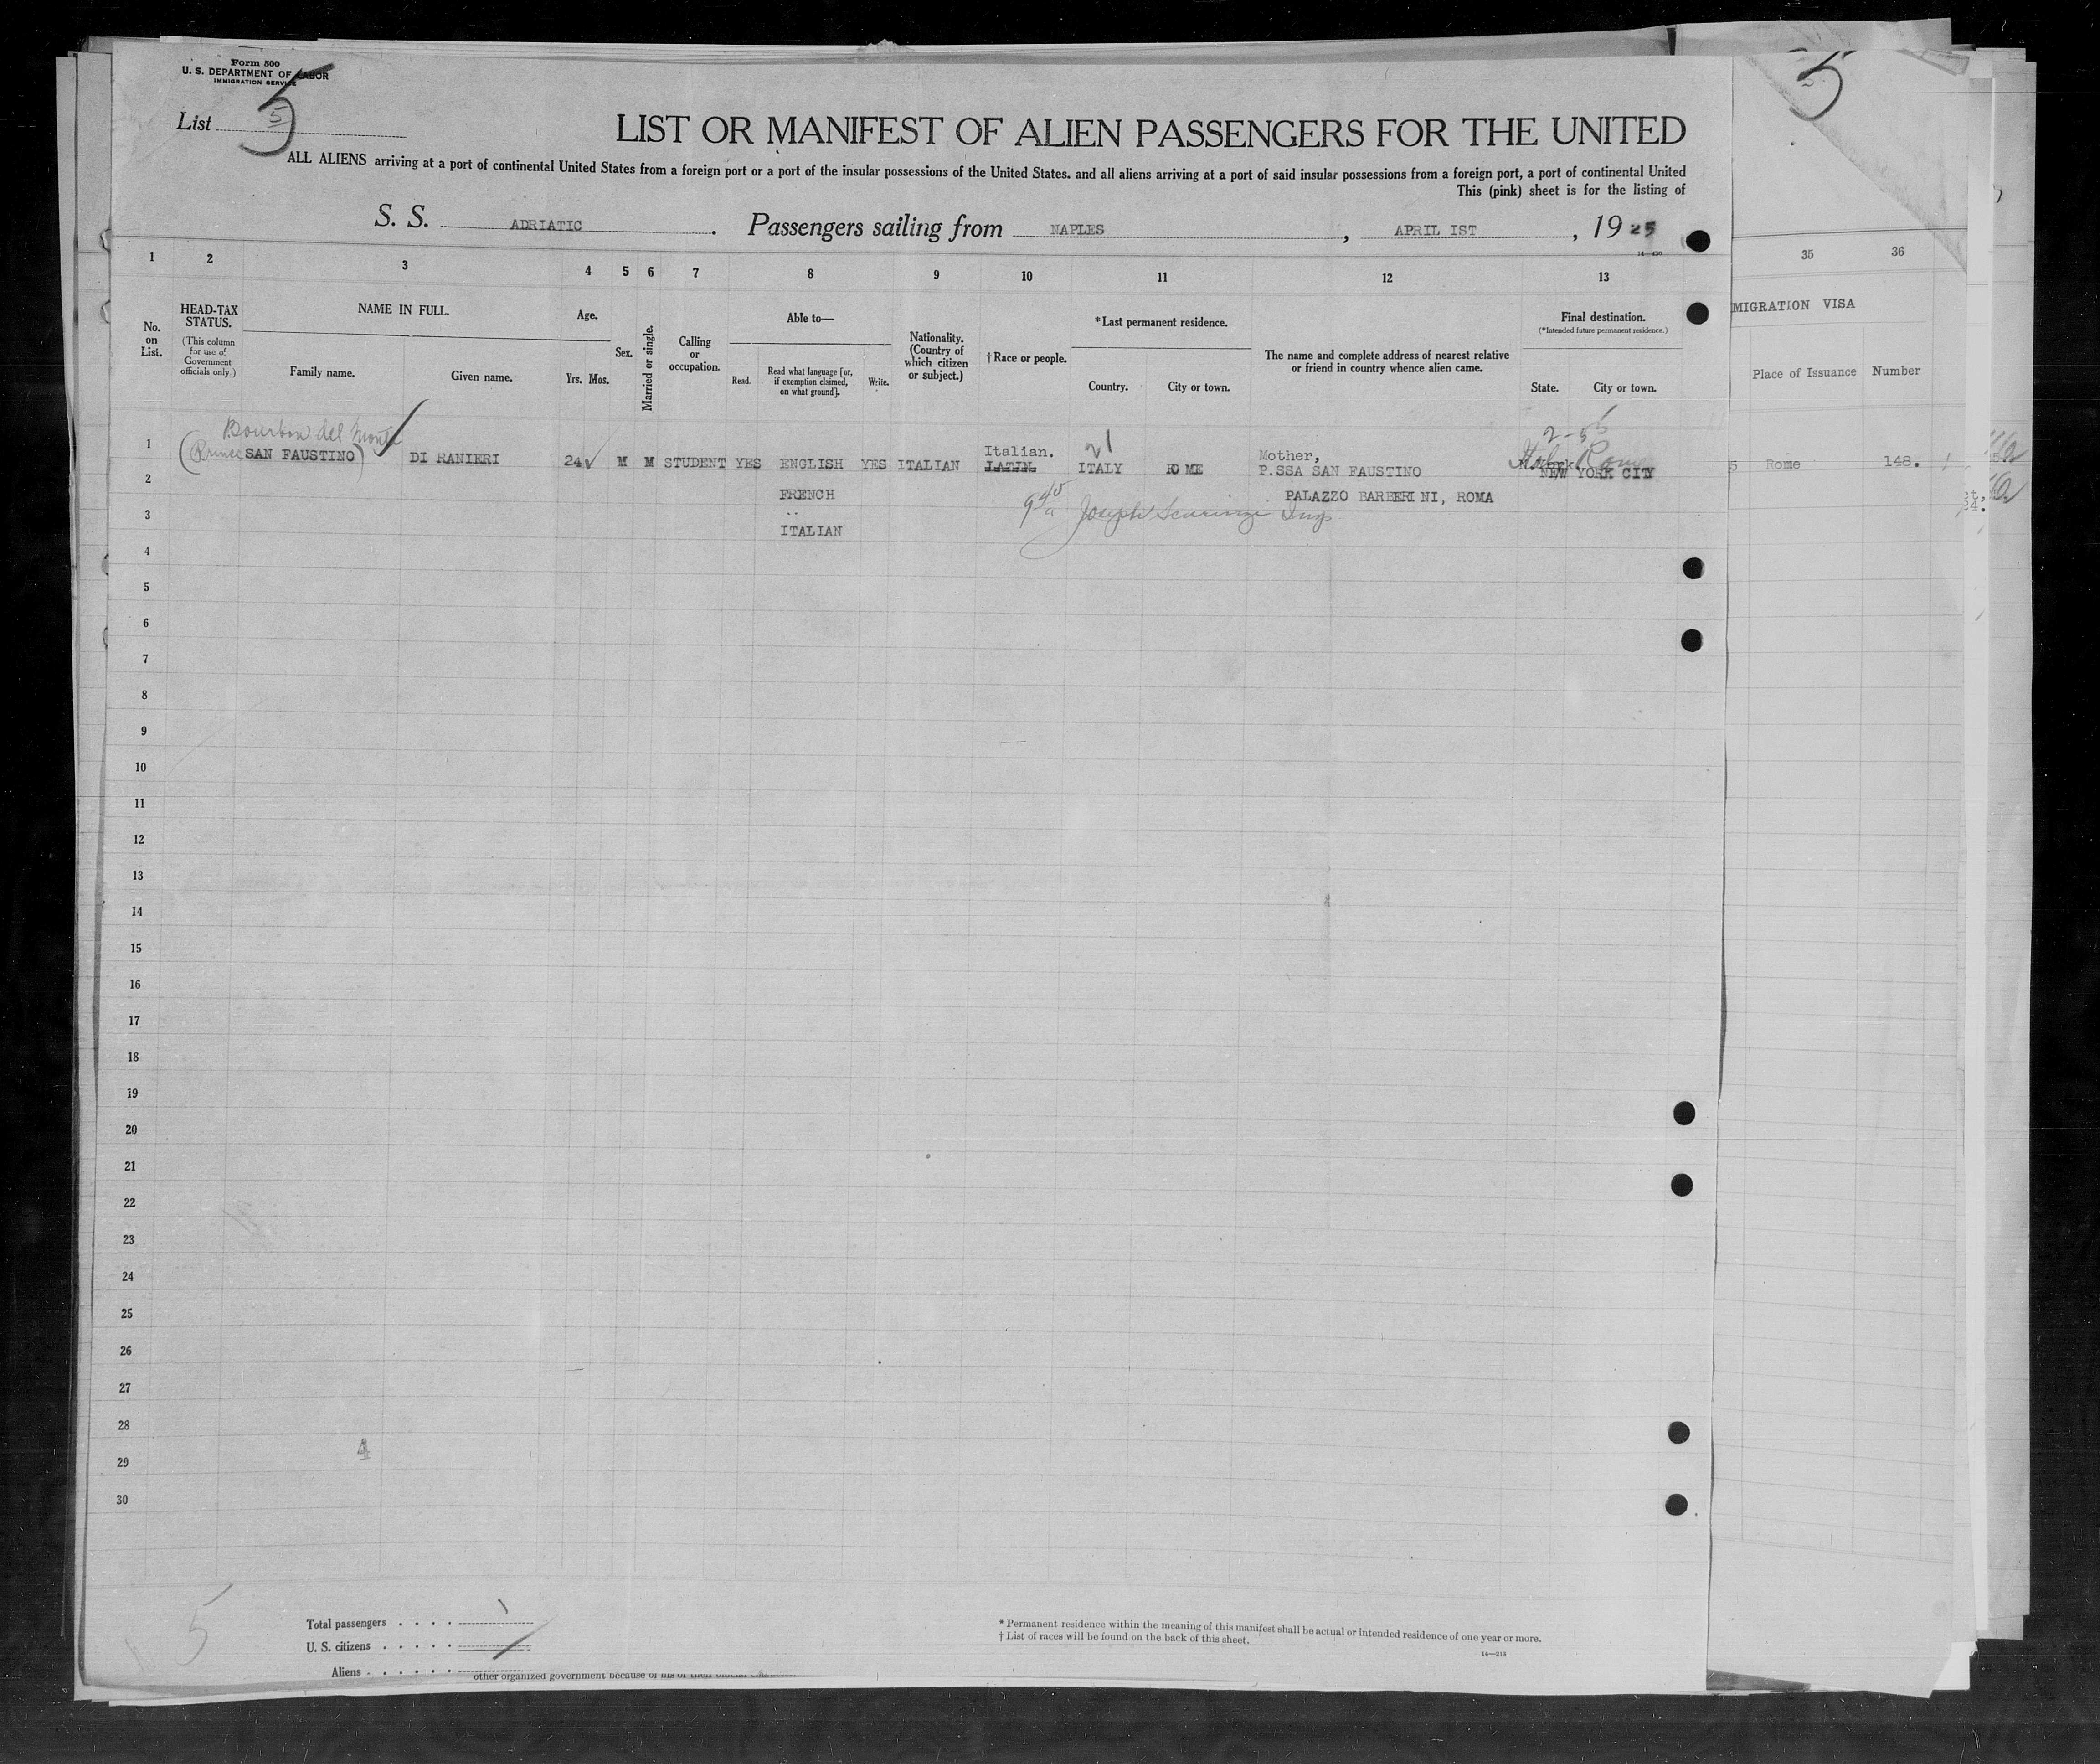 Form 500
U. S. DEPARTMENT OF LABOR
IMMIGRATION SERVICE
List 5
5
LIST OR MANIFEST OF ALIEN PASSENGERS FOR THE UNITED
ALL ALIENS arriving at a port of continental United States from a foreign port or a port of the insular possessions of the United States, and all aliens arriving at a port of said insular possessions from a foreign port, a port of continental United
This (pink) sheet is for the listing of
S. S. ADRIATIC . Passengers sailing from NAPLES , APRIL IST , 19 25
1 2 3 4 5 6 7 8 9 10 11 12 13 35 36
No. on List.
HEAD-TAX STATUS.
(This column for use of Government officials only.)
NAME IN FULL.
Family name. Given name.
Age.
Yrs. Mos.
Sex.
Married or single.
Calling or occupation.
Able to—
Read. Read what language [or, if exemption claimed, on what ground]. Write.
Nationality. (Country of which citizen or subject.)
†Race or people.
*Last permanent residence.
Country. City or town.
The name and complete address of nearest relative or friend in country whence alien came.
Final destination.
(*Intended future permanent residence.)
State. City or town.
MIGRATION VISA
Place of Issuance Number
Bourbon del Monte
2-5
1 (Prince SAN FAUSTINO) DI RANIERI 24 M M STUDENT YES ENGLISH YES ITALIAN Italian. LATIN. 21 ITALY ROME Mother, P.SSA SAN FAUSTINO Italy Rome NEW YORK CITY 5 Rome 148.
2 FRENCH PALAZZO BARBERINI, ROMA
3 .. ITALIAN 940 a Joseph Insp
4
5
6
7
8
9
10
11
12
13
14
15
16
17
18
19
20
21
22
23
24
25
26
27
28
29
30
4
5
Total passengers . . . .
U. S. citizens . . . . .
Aliens . . . . . .
other organized government because of his or their official
* Permanent residence within the meaning of this manifest shall be actual or intended residence of one year or more.
† List of races will be found on the back of this sheet.
14—213